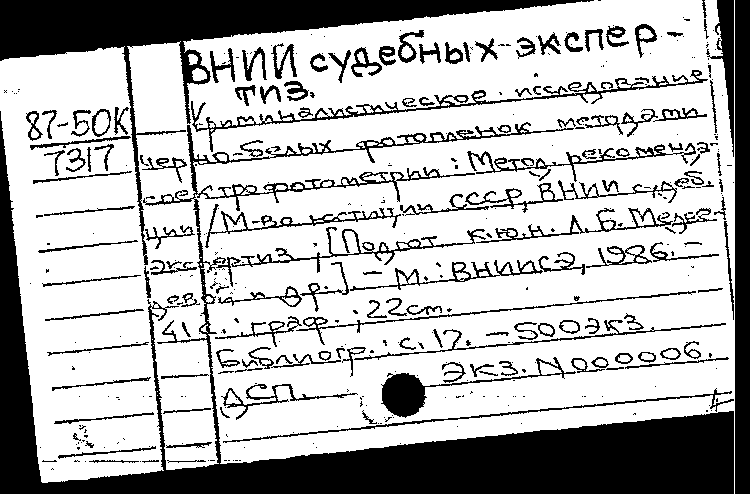 ВНИИ судебных экспер-
тиз.
87-50К
7317
Криминалистическое исследование
черно-белых фотопленок методами
спектрофотометрии: Метод. рекоменда-
ции / М-во юстиции СССР, ВНИИ судеб.
экспертиз; [Подгот. к.ю.н. Л. Б. Медве-
девой и др.]. - М.: ВНИИСЭ, 1986. -
41 с.: граф.; 22см.
Библиогр.: с. 17. - 500экз.
ДСП. Экз. N000006.